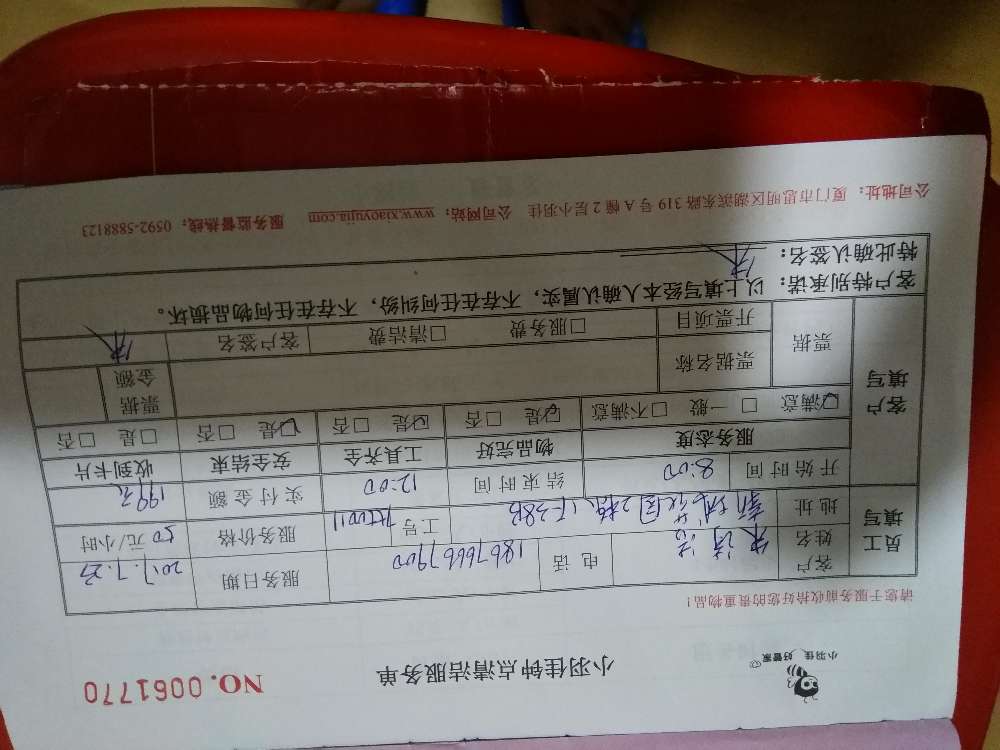 小羽佳 好管家
小羽佳钟点清洁服务单
NO. 0061770
请您于服务前收拾好您的贵重物品!
员工填写 客户姓名 朱清浩 电话 18676667900 服务日期 2017.7.23
地址 新城花园2栋 工号 服务价格 50 元/小时
开始时间 8:00 结束时间 12:00 实付金额 199元
客户填写 服务态度 物品完好 工具齐全 安全结束 收到卡片
☑满意 □一般 □不满意 ☑是 □否 ☑是 □否 ☑是 □否 □是 □否
票据 票据名称 票据金额
开票项目 □服务费 □清洁费 客户签名
客户特别承诺:以上填写经本人确认属实,不存在任何纠纷,不存在任何物品损坏。
特此确认签名:
公司地址:厦门市思明区湖滨东路 319 号 A 幢 2 层小羽佳 公司网站:www.xiaoyujia.com 服务监督热线:0592-5888123